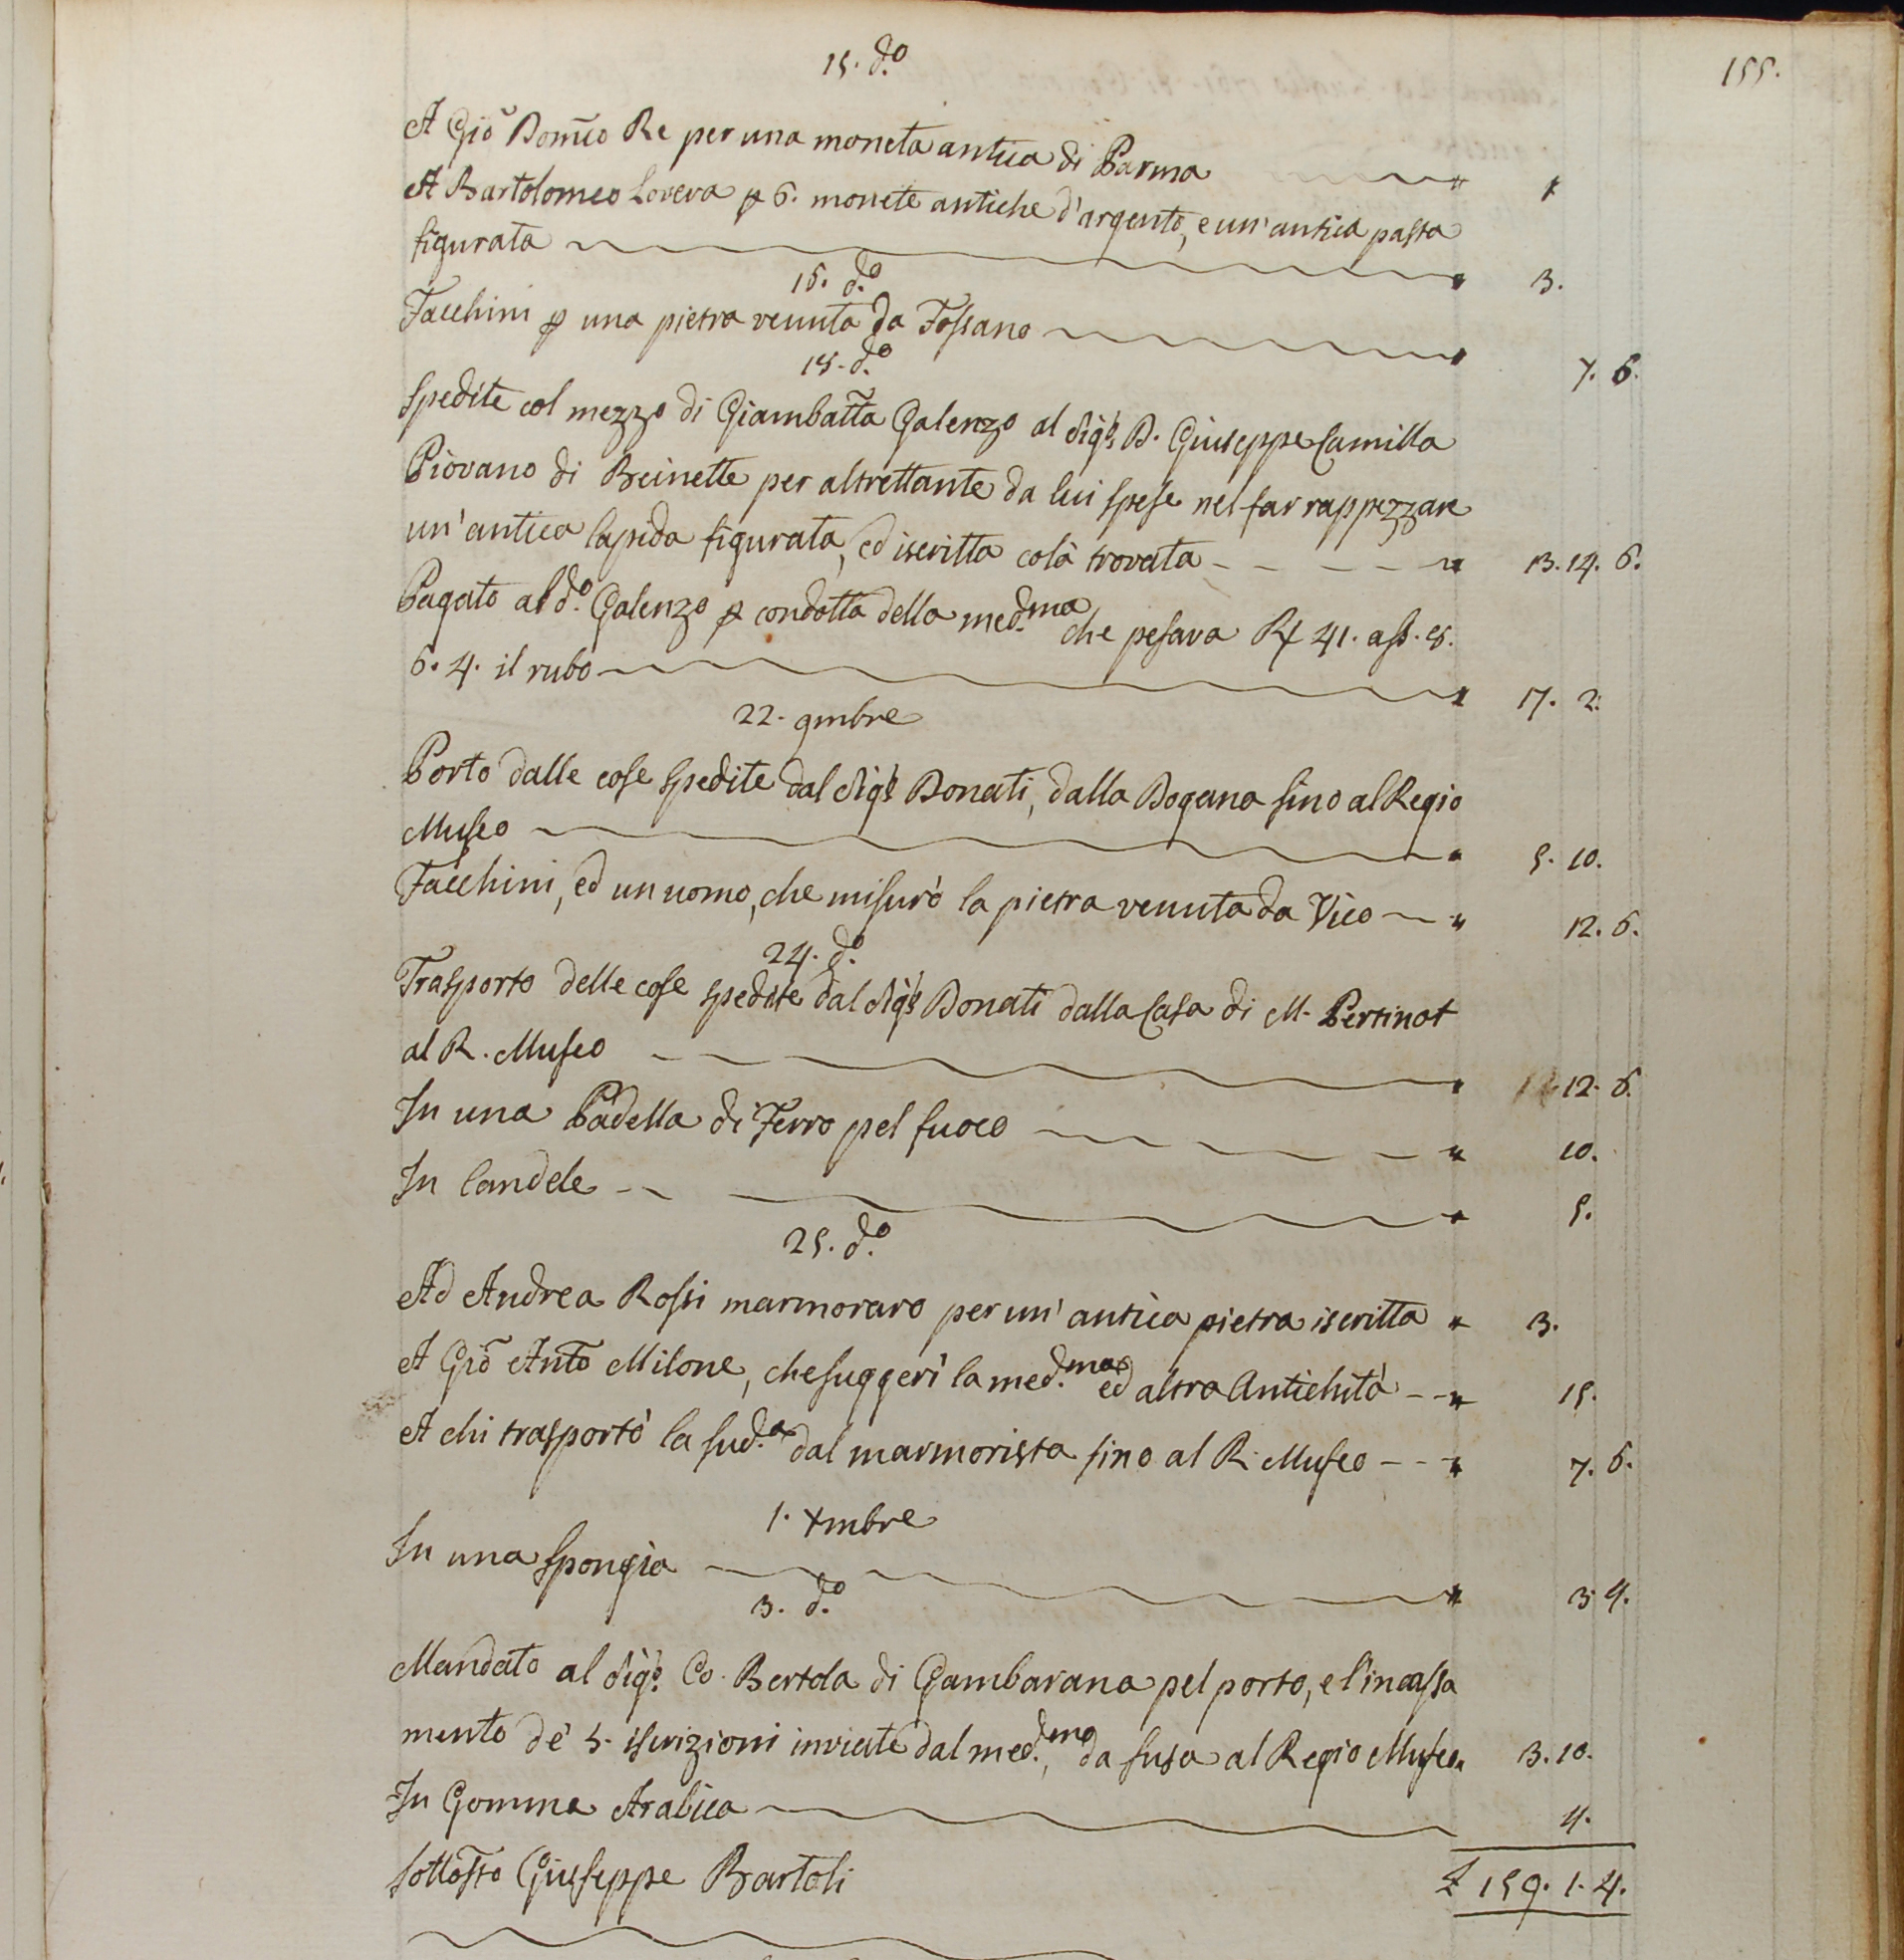 15. d.o
155.
A Gio Dom̃co Re per una moneta antica di Parma " 1
A Bartolomeo Lovera p 6. monete antiche d'argento, e un'antica pasta
figurata " 3.
16. d.o
Facchini p una pietra venuta da Fossano " 7. 6.
d.o
Spedite col mezzo di Giambatta Galenzo al Sigr. D. Giuseppe Camilla
Piovano di Beinette per altrettante da lui spese nel far rappezzare
un'antica lapida figurata, ed iscritta colà trovata " 13. 14. 6.
Pagato al d.o Galenzo p condotta della med.ma che pesava R 41. ass.
6. 4. il rubo " 17. 2.
22. 9mbre
Porto dalle cose spedite dal Sigr Donati, dalla Dogana sino al Regio
Museo " 5. 10.
Facchini, ed un uomo, che misurò la pietra venuta da Vico " 12. 6.
24. d.o
Trasporto delle cose spedite dal Sigr Donati dalla Casa di M. Pertinot
al R. Museo " 12. 6.
In una Padella di Ferro pel fuoco " 10.
In Candele " 5.
25. d.o
Ad Andrea Rossi marmoraro per un' antica pietra iscritta " 3.
A Gio Anto Milone, che suggerì la med.ma ed altra Antichità " 15.
A chi trasportò la sud.a dal marmorista sino al R. Museo " 7. 6.
1. Xmbre
In una spongia " 3. 4.
3. d.o
Mandato al Sigr. Co. Bertola di Gambarana pel porto, e l'incassa
mento de' 5. iscrizioni inviate dal med.mo, da Susa al Regio Museo " 3. 10.
In Gomma Arabica 4.
Sottosto Giuseppe Bartoli £ 159. 1. 4.